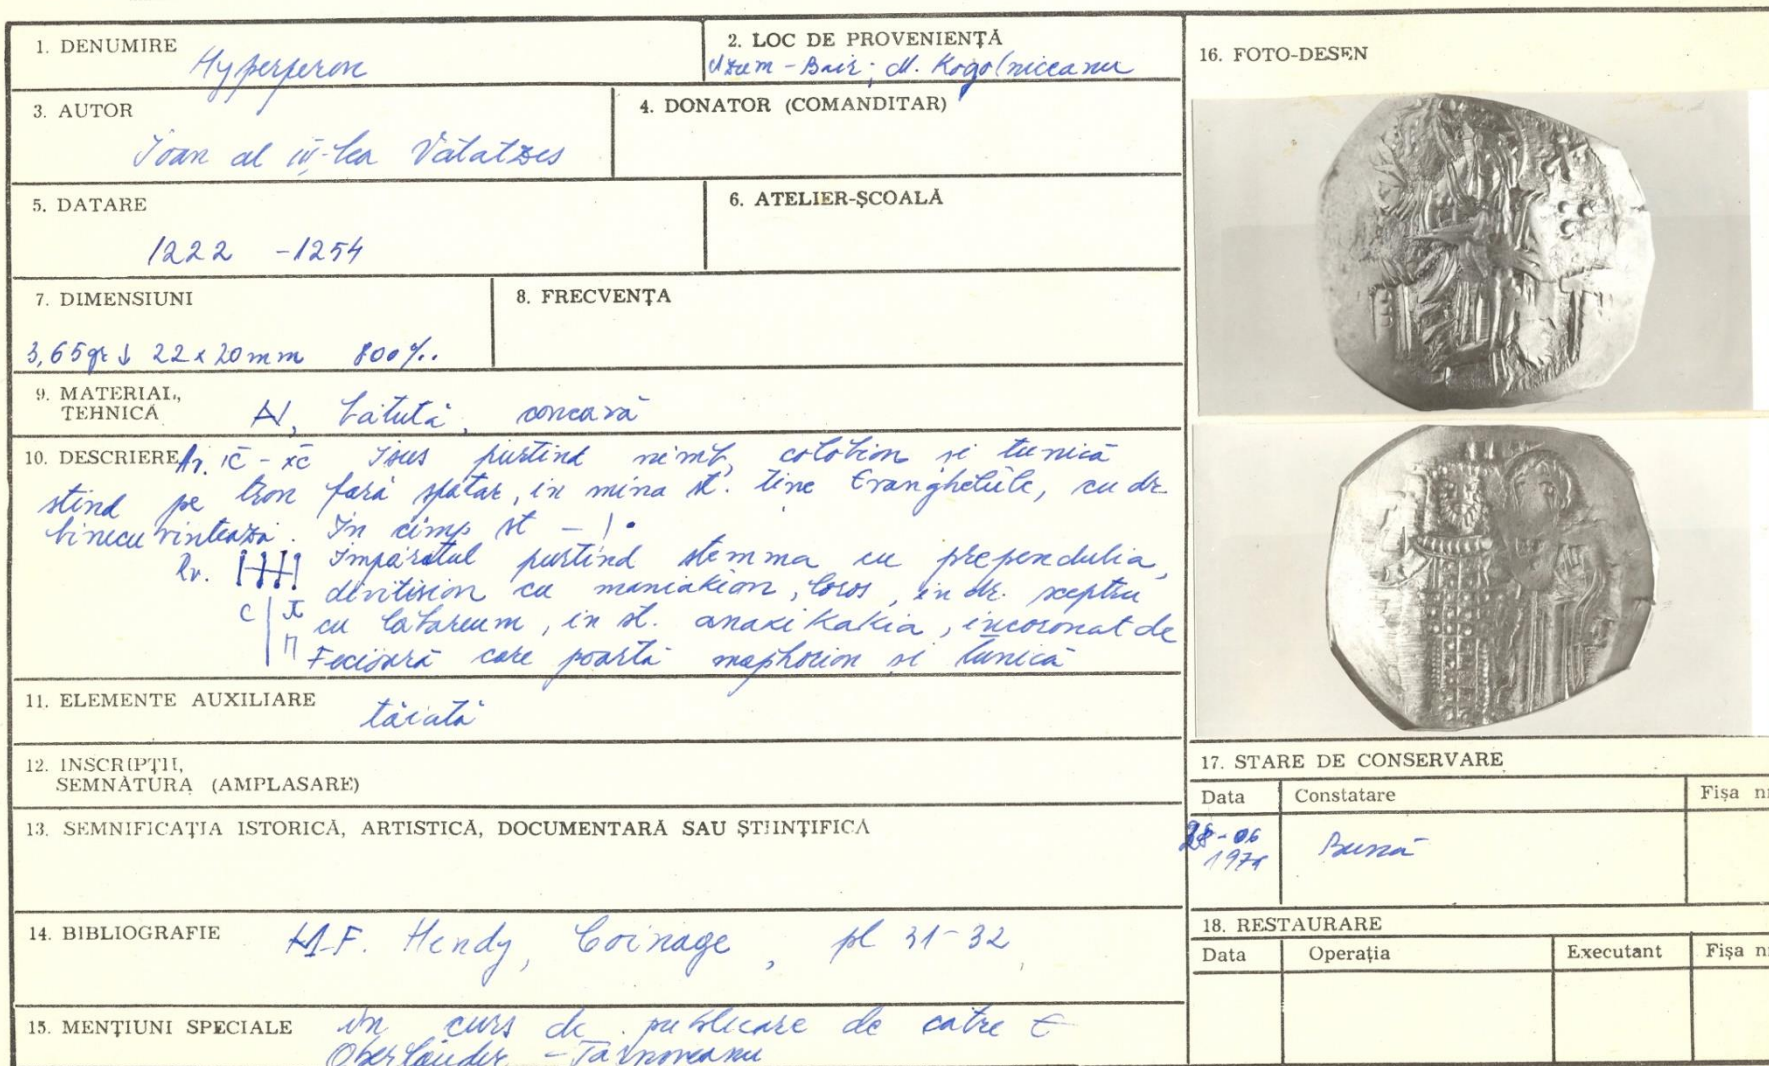 1. DENUMIRE
Hyperperon
2. LOC DE PROVENIENȚĂ
Uzum-Bair; M. Kogălniceanu
3. AUTOR
Ioan al III-lea Vatatzes
4. DONATOR (COMANDITAR)
5. DATARE
1222 - 1254
6. ATELIER-ȘCOALĂ
7. DIMENSIUNI
3,65gr ↓ 22x20mm 800‰
8. FRECVENȚA
9. MATERIAL,
TEHNICĂ
N, bătută, concavă
10. DESCRIERE Av. IC - XC Isus purtînd nimb, colobion si tunică
stînd pe tron fără spătar, in mîna st. tine Evangheliile, cu dr.
binecuvintează. In cîmp st -
Rv. Impăratul purtînd stemma cu prependulia,
divitision cu maniakion, loros, in dr. sceptru
C cu labareum, in st. anaxikakia, incoronat de
Π Fecioară care poartă maphorion si tunică
11. ELEMENTE AUXILIARE
tăiată
12. INSCRIPȚII,
SEMNĂTURA (AMPLASARE)
13. SEMNIFICAȚIA ISTORICĂ, ARTISTICĂ, DOCUMENTARĂ SAU ȘTIINȚIFICĂ
14. BIBLIOGRAFIE M.F. Hendy, Coinage, pl 31-32
15. MENȚIUNI SPECIALE In curs de publicare de catre E
Oberlănder - Tarnoveanu
16. FOTO-DESEN
17. STARE DE CONSERVARE
Data Constatare Fișa nr
28-06
Bună
18. RESTAURARE
Data Operația Executant Fișa nr